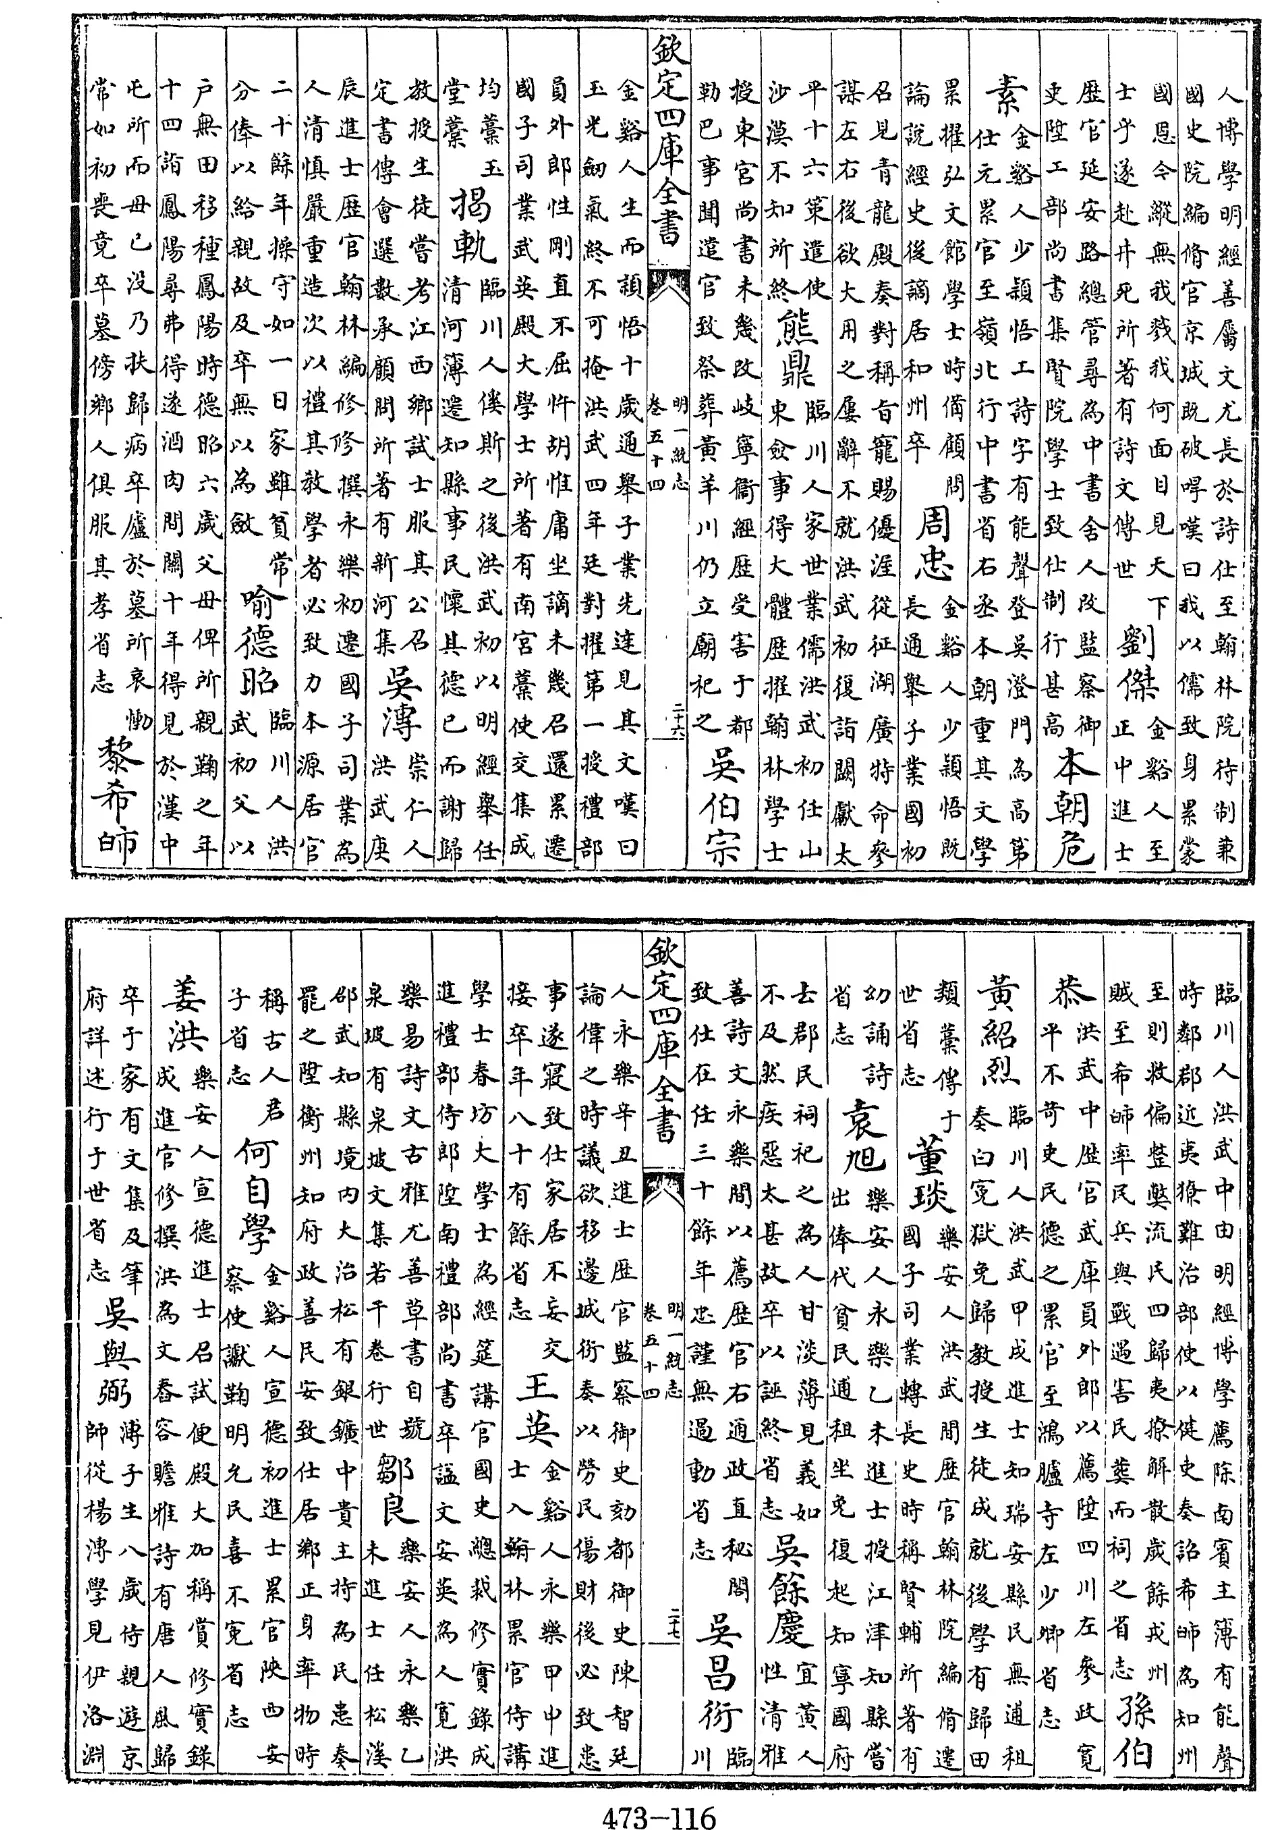 人博學明經善屬文尤長於詩仕至翰林院待制兼
國史院編脩官京城既破嘆曰我以儒致身累蒙
國恩令縱無我戮我何面目見天下
士乎遂赴井死所著有詩文傳世
劉傑
金谿人至
正中進士
歴官延安路總管尋為中書舍人改監察御
吏陞工部尚書集賢院學士致仕制行甚高
本朝危
素
金谿人少頴悟工詩字有能聲登吳澄門為高第
仕元累官至嶺北行中書省右丞本朝重其文學
累擢弘文館學士時備顧問
論說經史後謫居和州卒
周忠
金谿人少頴悟既
長通舉子業國初
召見青龍殿奏對稱旨寵賜優渥從征湖廣特命參
謀左右後欲大用之屢辭不就洪武初復詣闕獻太
平十六策遣使
沙漠不知所終
熊鼎
臨川人家世業儒洪武初任山
東僉事得大體歴擢翰林學士
授東宮尚書未幾改岐寧衞經歴受害于都
勒巴事聞遣官致祭葬黄羊川仍立廟祀之
吳伯宗
欽定四庫全書
明一統志
卷五十四
二十六
金谿人生而頴悟十歲通舉子業先達見其文嘆曰
玉光劍氣終不可掩洪武四年廷對擢第一授禮部
員外郎性剛直不屈忤胡惟庸坐謫未幾召還累遷
國子司業武英殿大學士所著有南宮藁使交集成
均藁玉
堂藁
揭軌
臨川人傒斯之後洪武初以明經舉任
清河簿遷知縣事民懷其德已而謝歸
教授生徒嘗考江西鄉試士服其公召
定書傳會選數承顧問所著有新河集
吳溥
崇仁人
洪武庚
辰進士歴官翰林編修修撰永樂初遷國子司業為
人清慎嚴重造次以禮其教學者必致力本源居官
二十餘年操守如一日家雖貧常
分俸以給親故及卒無以為斂
喻德昭
臨川人洪
武初父以
户無田移種鳳陽時德昭六歲父母俾所親鞠之年
十四詣鳳陽尋弗得遂酒肉問關十年得見於漢中
屯所而母已没乃扶歸病卒廬於墓所哀慟
常如初喪竟卒墓傍鄉人俱服其孝省志
黎希帥
臨川人洪武中由明經博學薦除南賓主簿有能聲
時鄰郡近夷獠難治部使以健吏奏詔希帥為知州
至則救偏整獘流民四歸夷獠解散歲餘戎州
賊至希帥率民兵與戰遇害民葬而祠之省志
孫伯
恭
洪武中歴官武庫員外郎以薦陞四川左參政寛
平不苛吏民德之累官至鴻臚寺左少卿省志
黃紹烈
臨川人洪武甲戌進士知瑞安縣民無逋租
奏白寃獄免歸教授生徒成就後學有歸田
類藁傳于
世省志
董琰
樂安人洪武間歴官翰林院編脩遷
國子司業轉長史時稱賢輔所著有
幼誦詩
省志
袁旭
樂安人永樂乙未進士授江津知縣嘗
出俸代貧民逋租坐免復起知寧國府
士郡民祠祀之為人甘淡薄見義如
不及然疾惡太甚故卒以誣終省志
吳餘慶
宜黃人
性清雅
善詩文永樂間以薦歴官右通政直秘閣
致仕在任三十餘年忠謹無過動省志
吳昌衍
臨
川
欽定四庫全書
明一統志
卷五十四
二十七
人永樂辛丑進士歴官監察御史劾都御史陳智廷
論偉之時議欲移邊城衍奏以勞民傷財後必致患
事遂寢致仕家居不妄交
接卒年八十有餘省志
王英
金谿人永樂甲申進
士入翰林累官侍講
學士春坊大學士為經筵講官國史總裁修實錄成
進禮部侍郎陞南禮部尚書卒謚文安英為人寛洪
樂易詩文古雅尤善草書自號
泉坡有泉坡文集若干卷行世
鄒良
樂安人永樂乙
未進士任松溪
邵武知縣境内大治松有銀鑛中貴主持為民患奏
罷之陞衡州知府政善民安致仕居鄉正身率物時
稱古人君
子省志
何自學
金谿人宣德初進士累官陜西安
察使讞鞠明允民喜不寃省志
姜洪
樂安人宣德進士召試便殿大加稱賞修實錄
成進官修撰洪為文舂容贍雅詩有唐人風歸
卒于家有文集及筆
府詳述行于世省志
吳與弼
溥子生八歲侍親遊京
師從楊溥學見伊洛淵
473-116